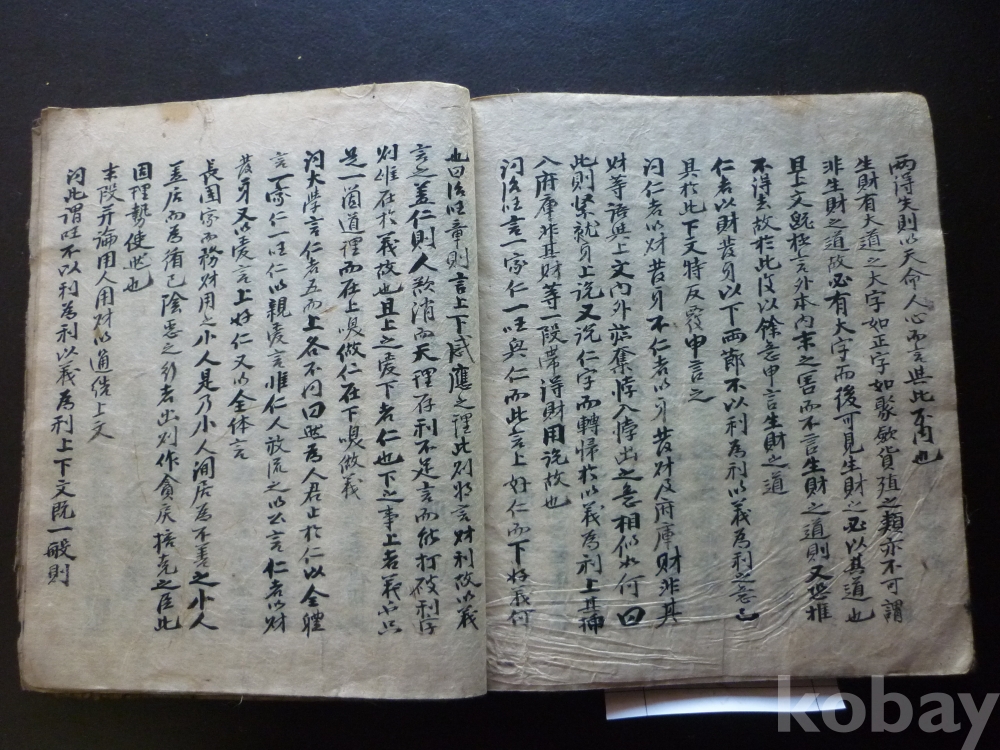 兩得失則以天命人心而言與此不同也
生財有大道之大字如正字如聚斂貨殖之類亦不可謂
非生財之道故必有大字而後可見生財之必以其道也
且上文旣極言外本內末之害而不言生財之道則又恐推
不得去故於此段以餘意申言生財之道
仁者以財發身以下兩節不以利爲利以義爲利之意已
具於此下文特反覆申言之
問仁者以財發身不仁者以身發財及府庫財非其
財等語與上文內外爭奪悖入悖出之意相似如何曰
此則緊就身上說又說仁字而轉歸於以義爲利上其
入府庫非其財等一段帶得財用說故也
問後註言一家仁一国興仁而此言上好仁而下好義何
也曰治国章則言上下感應之理此則將言財利故以義
言之盖仁則人欲消而天理存利不足言而能打破利字
則雖在於義故也且上之愛下者仁也下之事上者義也只
是一箇道理而在上喚做仁在下喚做義
問大學言仁者五而上各不同曰與爲人君止於仁以全體
言一家仁一国仁以親愛言惟仁人放流之以公言仁者以財
發身又以愛言上好仁又以全体言
長国家而務財用之小人是乃小人閒居爲不善之小人
盖居而爲循己陰惡之行者出則作貪戾掊克之臣此
因理勢使然也
末段并論用人用財以通結上文
問此謂国不以利爲利以義爲利上下文旣一般則